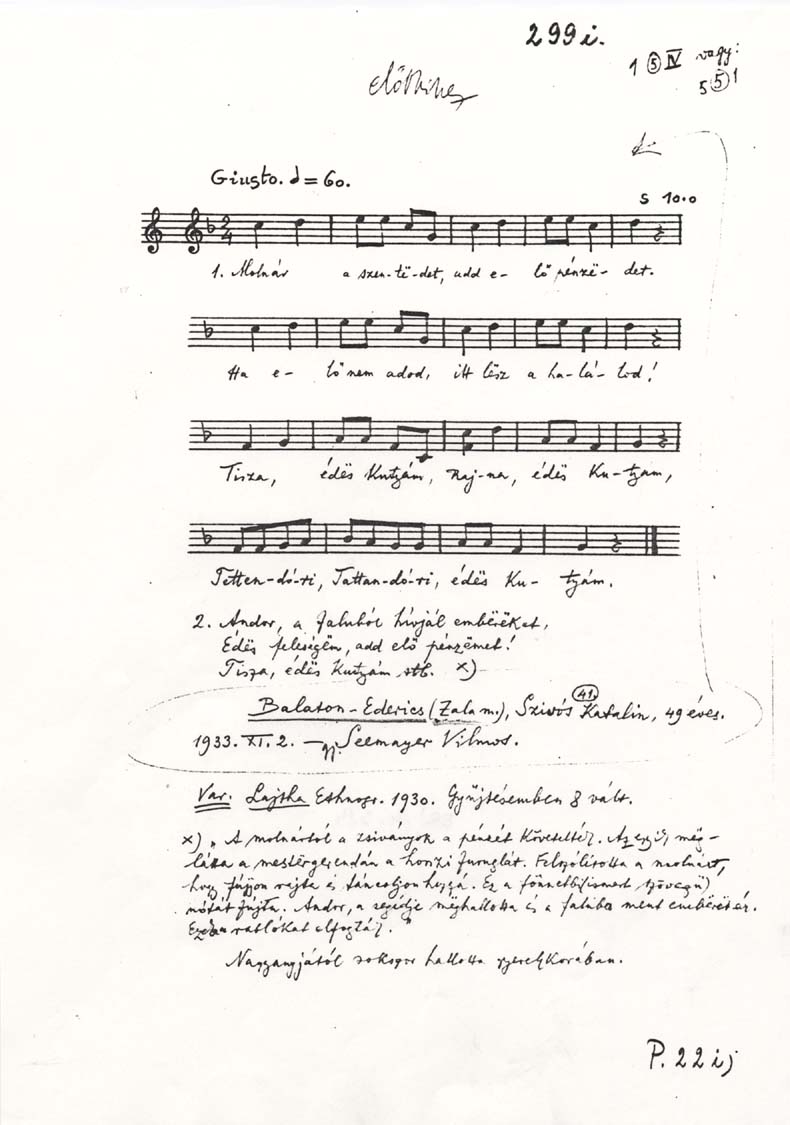 299 i.
1 5 IV vagy:
5 5 1
Giusto. = 60.
S 10.0
1. Molnár a szen-të-det, add e- lő pénzë- det.
Ha e- lő nem adod, itt lësz a ha-lá- lod!
Tisza, édës Kutyám, Raj-na, édës Ku-tyám,
Tetten-dó-ri, Tattan-dó-ri, édës Ku- tyám.
2. Andor, a faluból hívjál embërëket,
Édës feleségëm, add elő pénzëmet!
Tisza, édës Kutyám stb. x)
Balaton-Ederics (Zala m.), Szívós Katalin, 49 éves.
41
1933. XI. 2. – gy. Seemayer Vilmos.
Var. Lajtha Ethnogr. 1930. Gyűjtésemben 8 vált.
x) „A molnártól a zsiványok a pénzét követelték. Az egyik mëg-
látta a mestergerendán a hosszi furuglát. Felszólította a molnárt,
hogy fújjon rajta és táncoljon hozzá. Ez a fönnebb ismert szövegű
nótát fújta. Andor, a segédje mëghallotta és a faluba ment embërëkér.
Ezek a rablókat elfogták."
Nagyanyjától sokszor hallotta gyerekkorában.
P. 22 ij